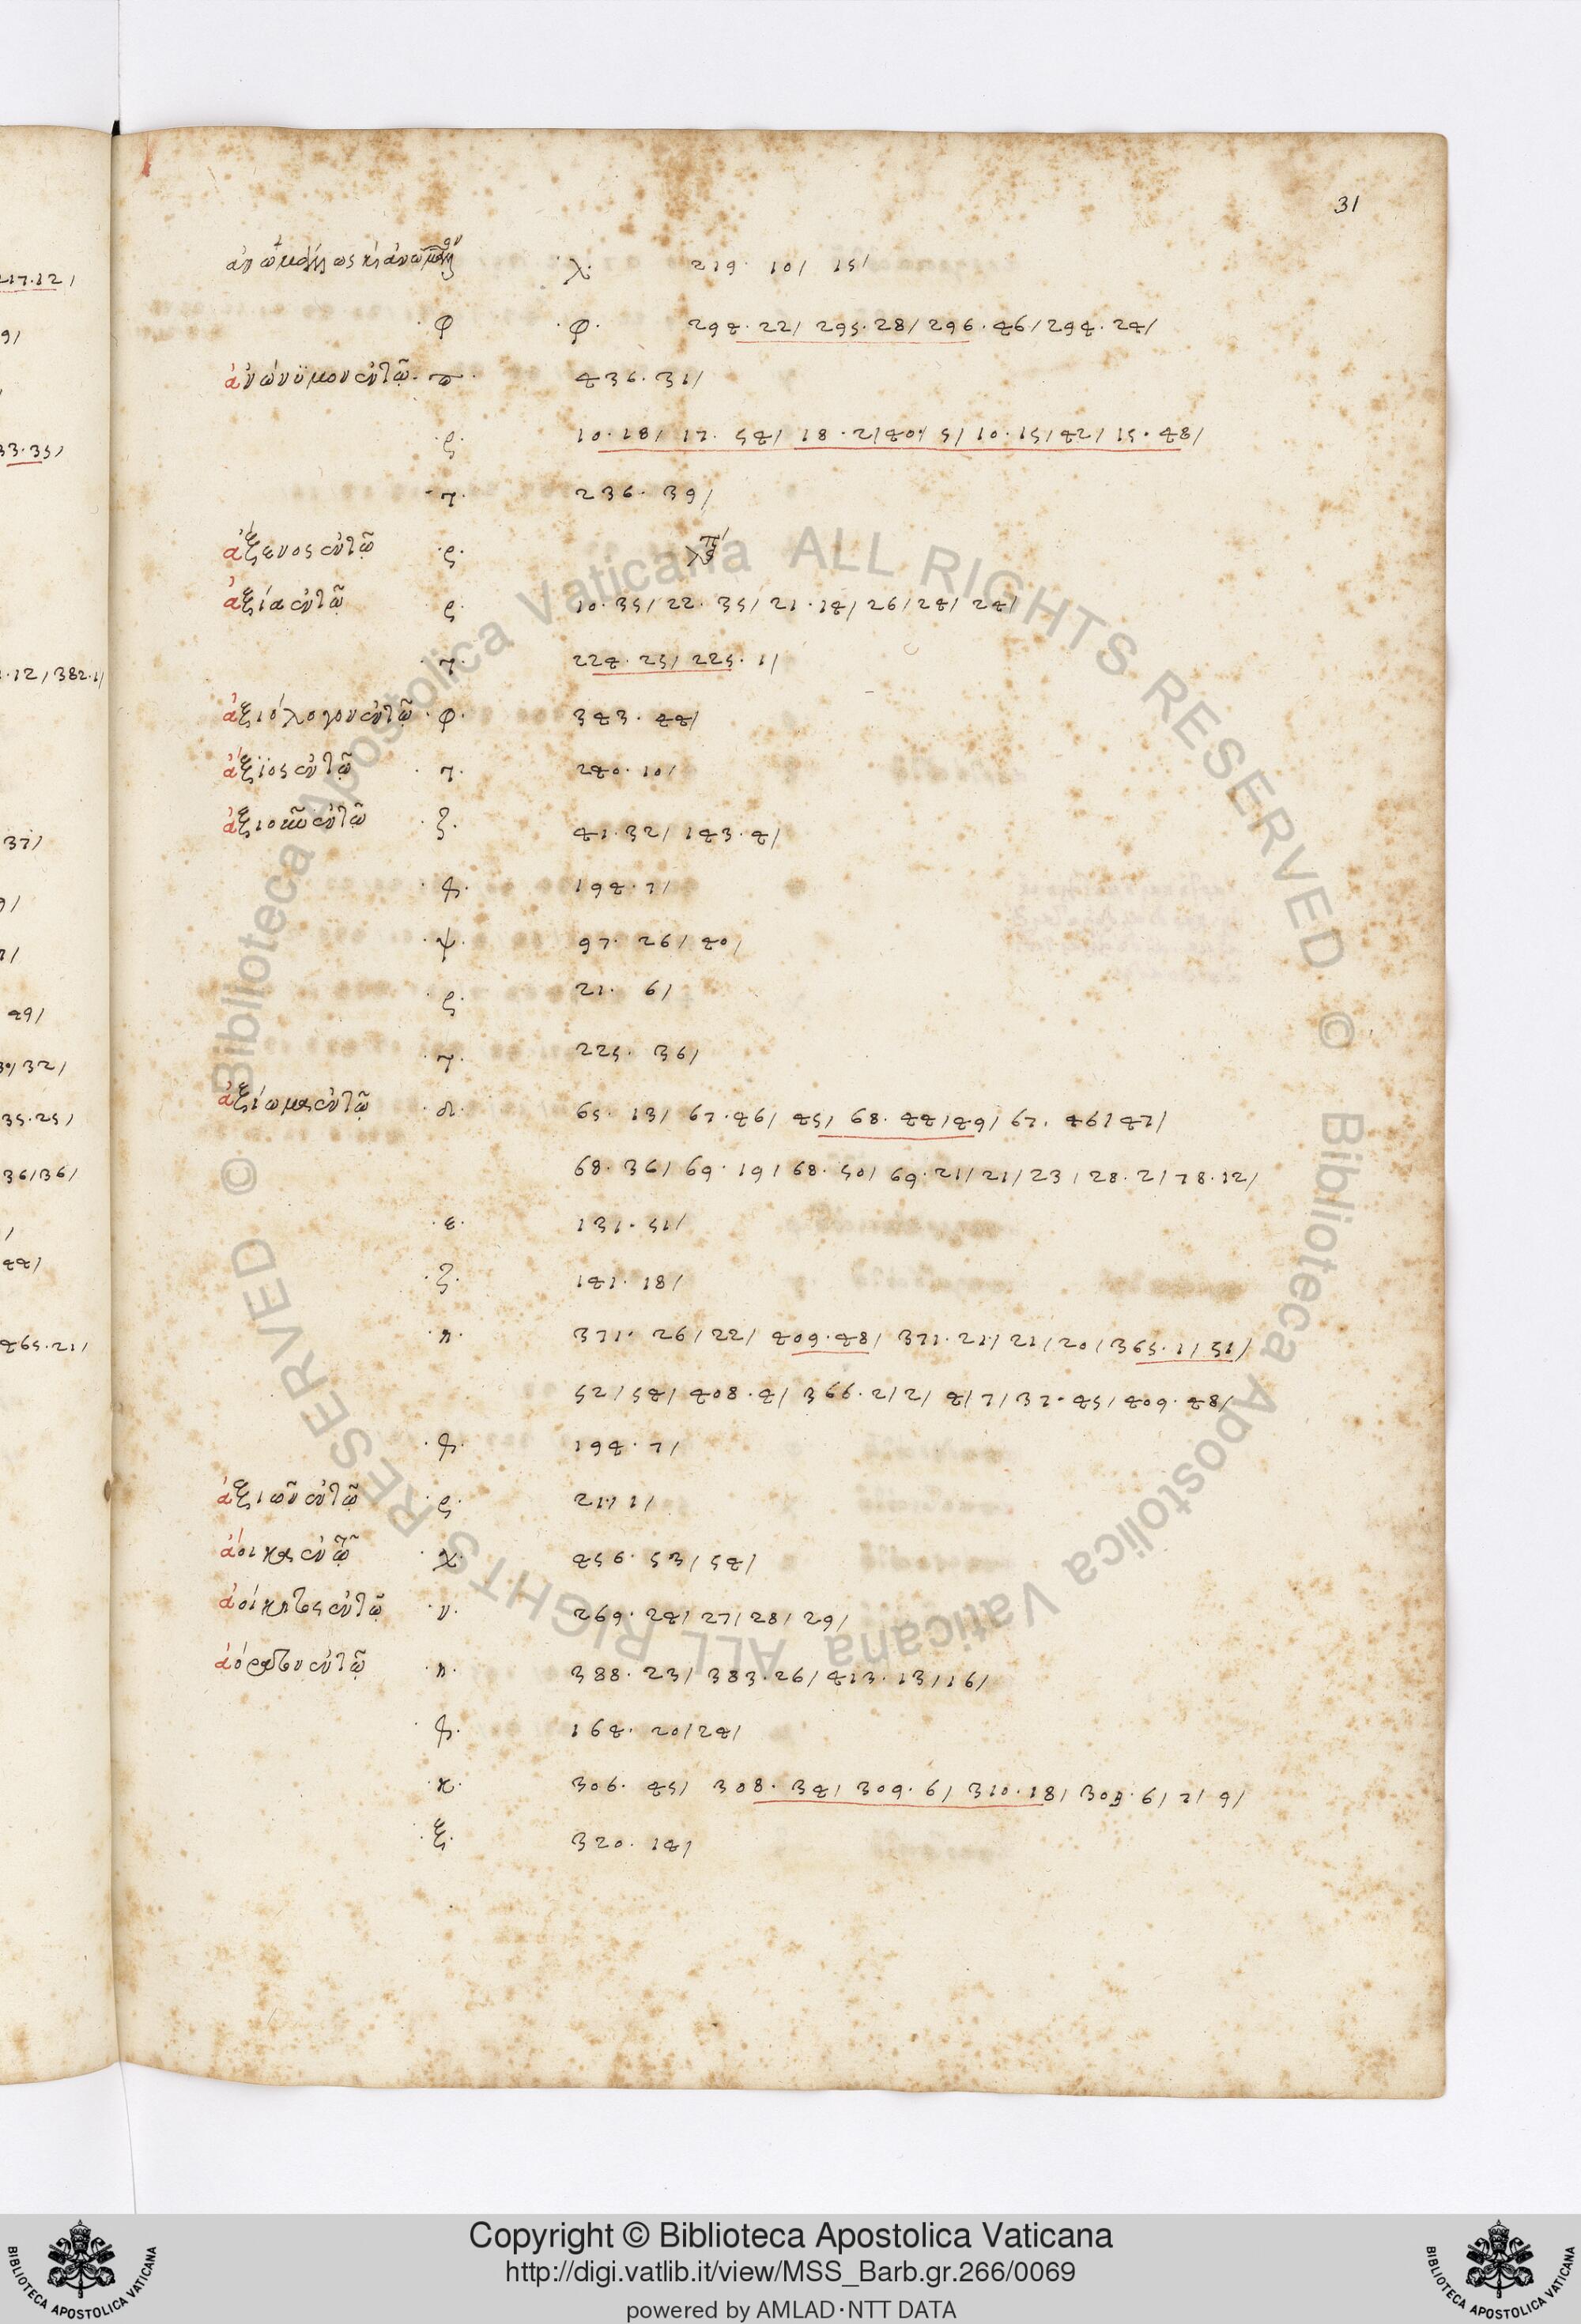 31
.λ. 219. 10/ 15/
.φ .φ. 294. 22/ 295. 28/ 296. 46/ 294. 24/
ἀνώνϋμον ἐν τῶ. π. 436. 31/
.ς. 10. 18/ 17. 54/ 18. 2/ 40/ 5/ 10. 15/ 42/ 15. 48/
.τ. 236. 39/
ἄξενος ἐν τῶ .ς.
ἀξία ἐν τῶ .ς. 10. 35/ 22. 35/ 21. 14/ 26/ 24/ 24/
.τ. 224. 25/ 225. 1/
ἀξιόλογον ἐν τῶ .φ. 343. 44/
ἄξϊος ἐν τῶ .τ. 240. 10/
.ζ. 41. 32/ 143. 4/
194. 7/
.ψ. 97. 26/ 40/
.ς. 21. 6/
.τ. 225. 36/
ἀξίωμα ἐν τῶ 65. 13/ 67. 46/ 45/ 68. 44/ 49/ 67. 46/ 47/
68. 36/ 69. 19/ 68. 50/ 69. 21/ 21/ 23/ 28. 2/ 78. 12/
.ε. 131. 51/
.ζ. 141. 18/
371. 26/ 22/ 409. 48/ 371. 21/ 21/ 20/ 365. 1/ 51/
52/ 54/ 408. 4/ 366. 2/ 2/ 4/ 7/ 37. 45/ 409. 48/
194. 7/
ἀξιοῦν ἐν τῶ .ς. 21. 1/
ἄοικος ἐν τῶ .χ. 456. 53/ 54/
ἀοίκητος ἐν τῶ .ν. 269. 24/ 27/ 28/ 29/
ἀόρατον ἐν τῶ 388. 23/ 383. 26/ 413. 13/ 16/
164. 20/ 24/
.κ. 306. 45/ 308. 34/ 309. 6/ 310. 18/ 309. 6/ 7/ 9/
.ξ. 320. 14/
217. 12/
33. 35/
12/ 382. 1/
37/
49/
32/
35. 25/
36/ 36/
44/
465. 21/
© Biblioteca Apostolica Vaticana ALL RIGHTS RESERVED © Biblioteca Apostolica Vaticana ALL RIGHTS RESERVED
Copyright © Biblioteca Apostolica Vaticana
http://digi.vatlib.it/view/MSS_Barb.gr.266/0069
powered by AMLAD·NTT DATA
BIBLIOTECA APOSTOLICA VATICANA
BIBLIOTECA APOSTOLICA VATICANA